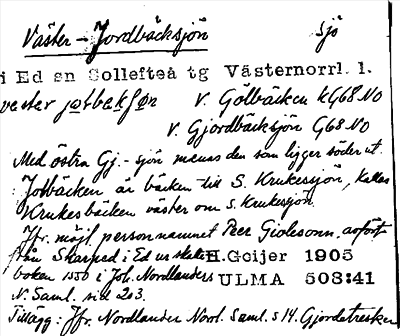 Väster-Jordbäcksjön sjö
i Ed sn Sollefteå tg Västernorrl. l.
vester jotbekʃøn V. Gölbäcken KG68 NO
V. Gjordbäcksjön G68 NO
Med östra Gj.-sjön menas den som ligger söder ut.
Jotbäcken är bäcken till S. Krukesjön, kallas
Krukesbäcken väster om S. Krukesjön.
Jfr. möjl. personnamnet Peer Giolesonn, avfört
från Skarped i Ed
boken 1550 i Joh. Nordlanders H.Geijer 1905
N. Saml. sid 203. ULMA 503:41
Tillägg: Jfr. Nordlander Norrl. Saml. s 14. Gjordetresken